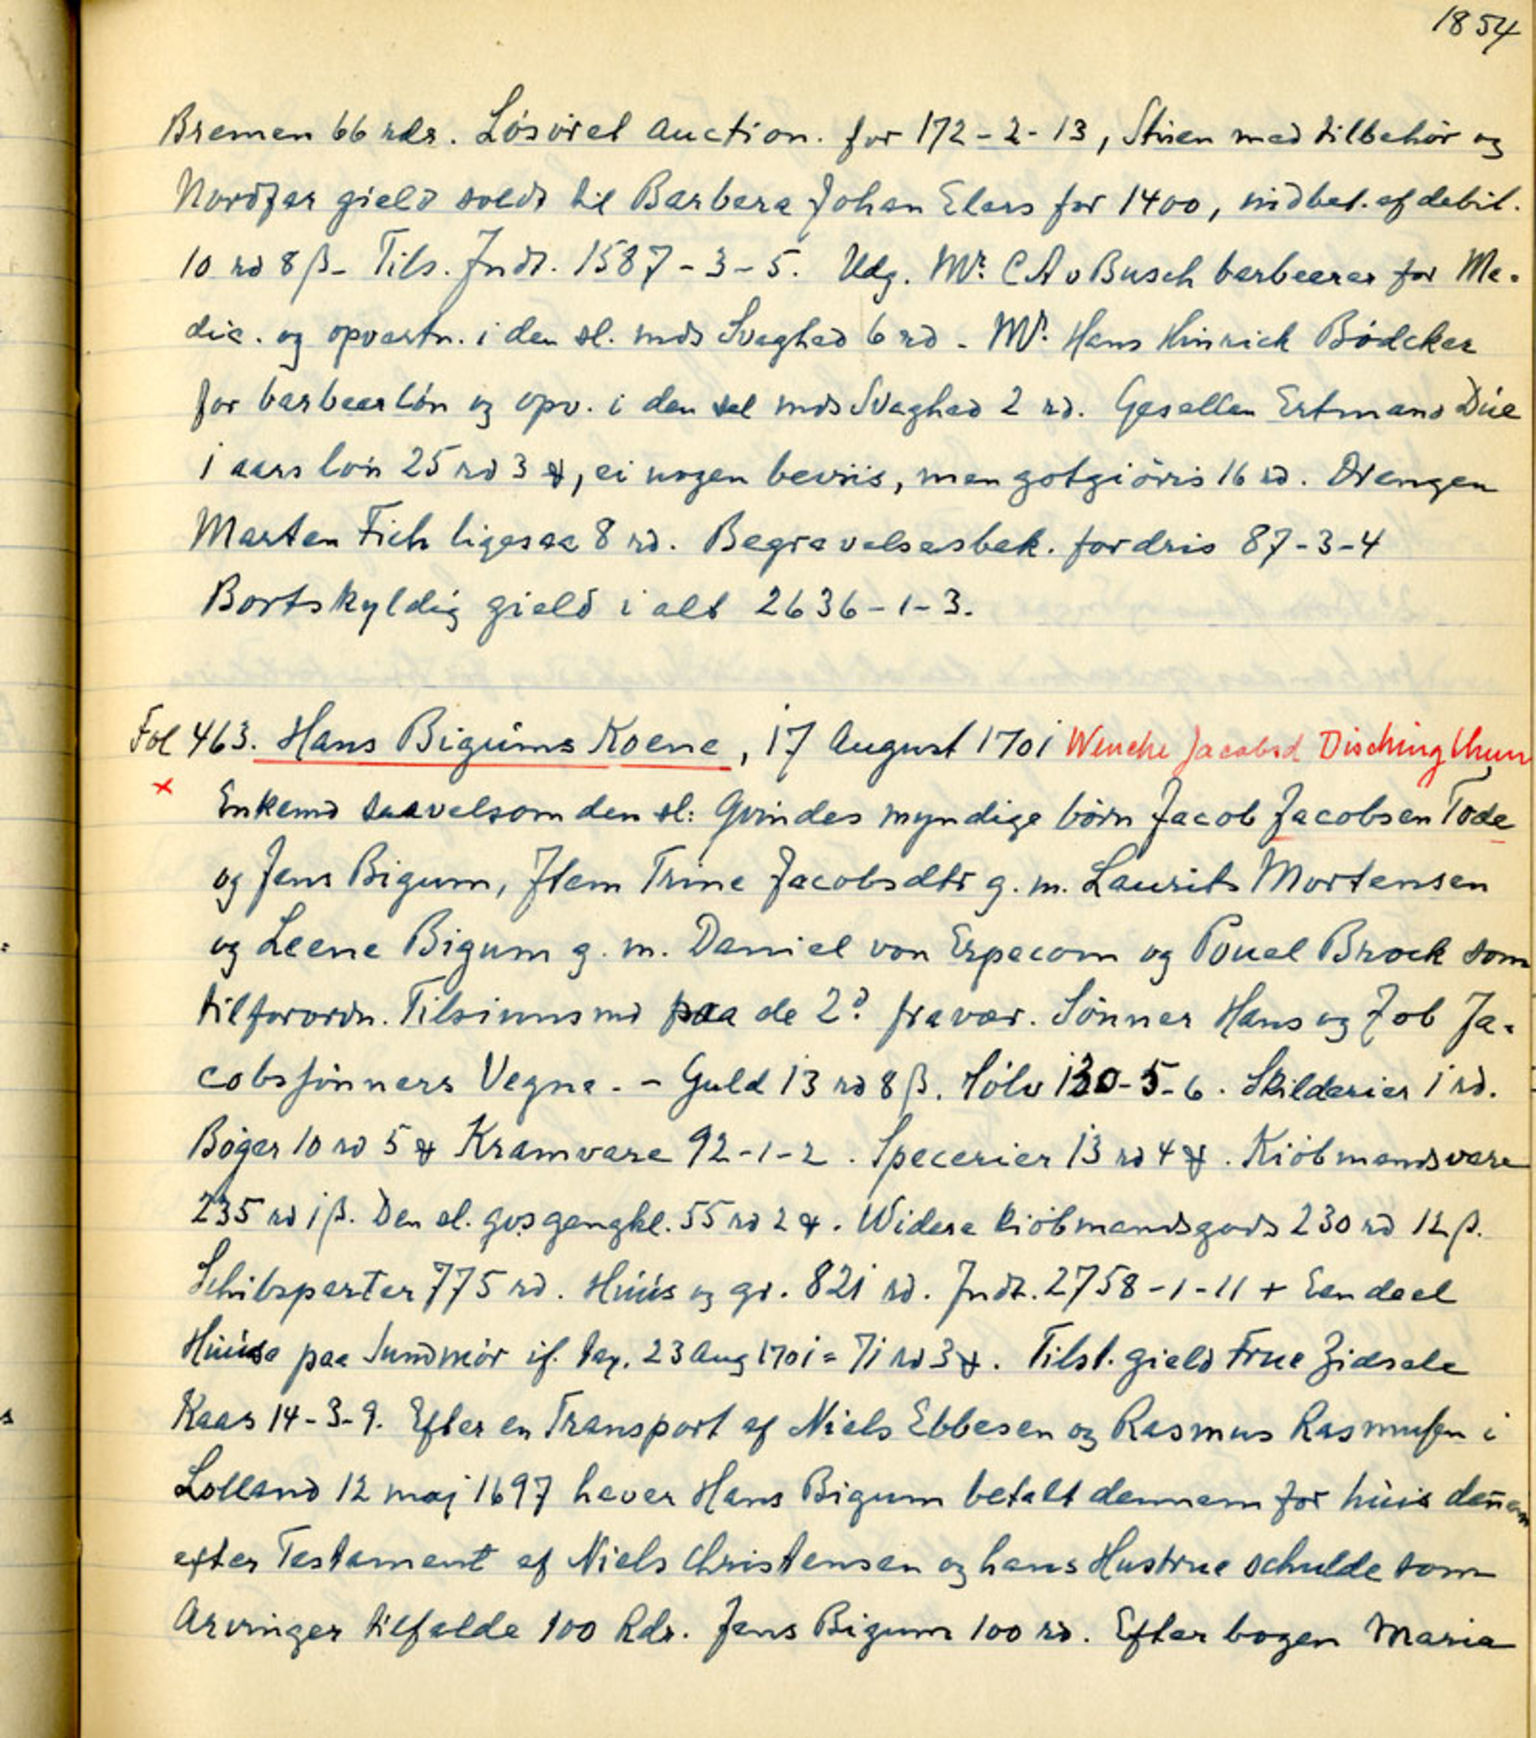 1854
Bremen 66 rdr. Lösöret Auction. for 172-2-13, Stuen med tilbehör og
Nordfar gield soldt til Barbera Johan Elers for 1400, indbet. af debit.
10 rd 8 β - Tils. Indt. 1587-3-5. Udg. Mr. C A v Busch barbeerer for Me-
dic. og opvartn. i den sl. mds Svaghed 6 rd - Mr. Hans Hinrich Bödcker
for barbeerlön og opv. i den sel mds Svaghed 2 rd. Gesellen Ertmand Düe
i aars lön 25 rd 3 ꝸ, ei nogen beviis, men gotgiöris 16 rd. Drengen
Marten Fich ligesaa 8 rd. Begravelsesbek. fordris 87-3-4
Bortskyldig gield i alt 2636-1-3.
Fol 463. Hans Bigums Koene, 17 August 1701 Wenche Jacobsd Disching
Enkemd saavelsom den sl: Qvindes myndige börn Jacob Jacobsen Tode
og Jens Bigum, Item Trine Jacobsdtr g. m. Laurits Mortensen
og Leene Bigum g. m. Daniel von Erpecom og Pouel Brock som
tilforordn. Tilsiunsmd paa de 2de fravær. Sönner Hans og Job Ja-
cobsſönners Vegne. - Guld 13 rd 8 β. Sölv 130-5-6. Skilderier 1 rd.
Böger 10 rd 5 ꝸ Kramvare 92-1-2. Specerier 13 rd 4 ꝸ. Kiöbmandsvare
235 rd 1 β. Den sl. qvs gangkl. 55 rd 2 ꝸ. Widere kiöbmandsgods 230 rd 12 β.
Schibsparter 775 rd. Hüus og gr. 821 rd. Indt. 2758-1-11 + Een deel
Hüuse paa Sundmör if. tax. 23 Aug 1701 = 71 rd 3 ꝸ. Tilst. gield Frue Zidsele
Kaas 14-3-9. Efter en Transport af Niels Ebbesen og Rasmus Rasmuſen i
Lolland 12 maj 1697 haver Hans Bigum betalt dennem for hüis denem
efter Testament af Niels Christensen og hans Hustrue schulde som
Arvinger tilfalde 100 Rdr. Jens Bigum 100 rd. Efter bogen Maria